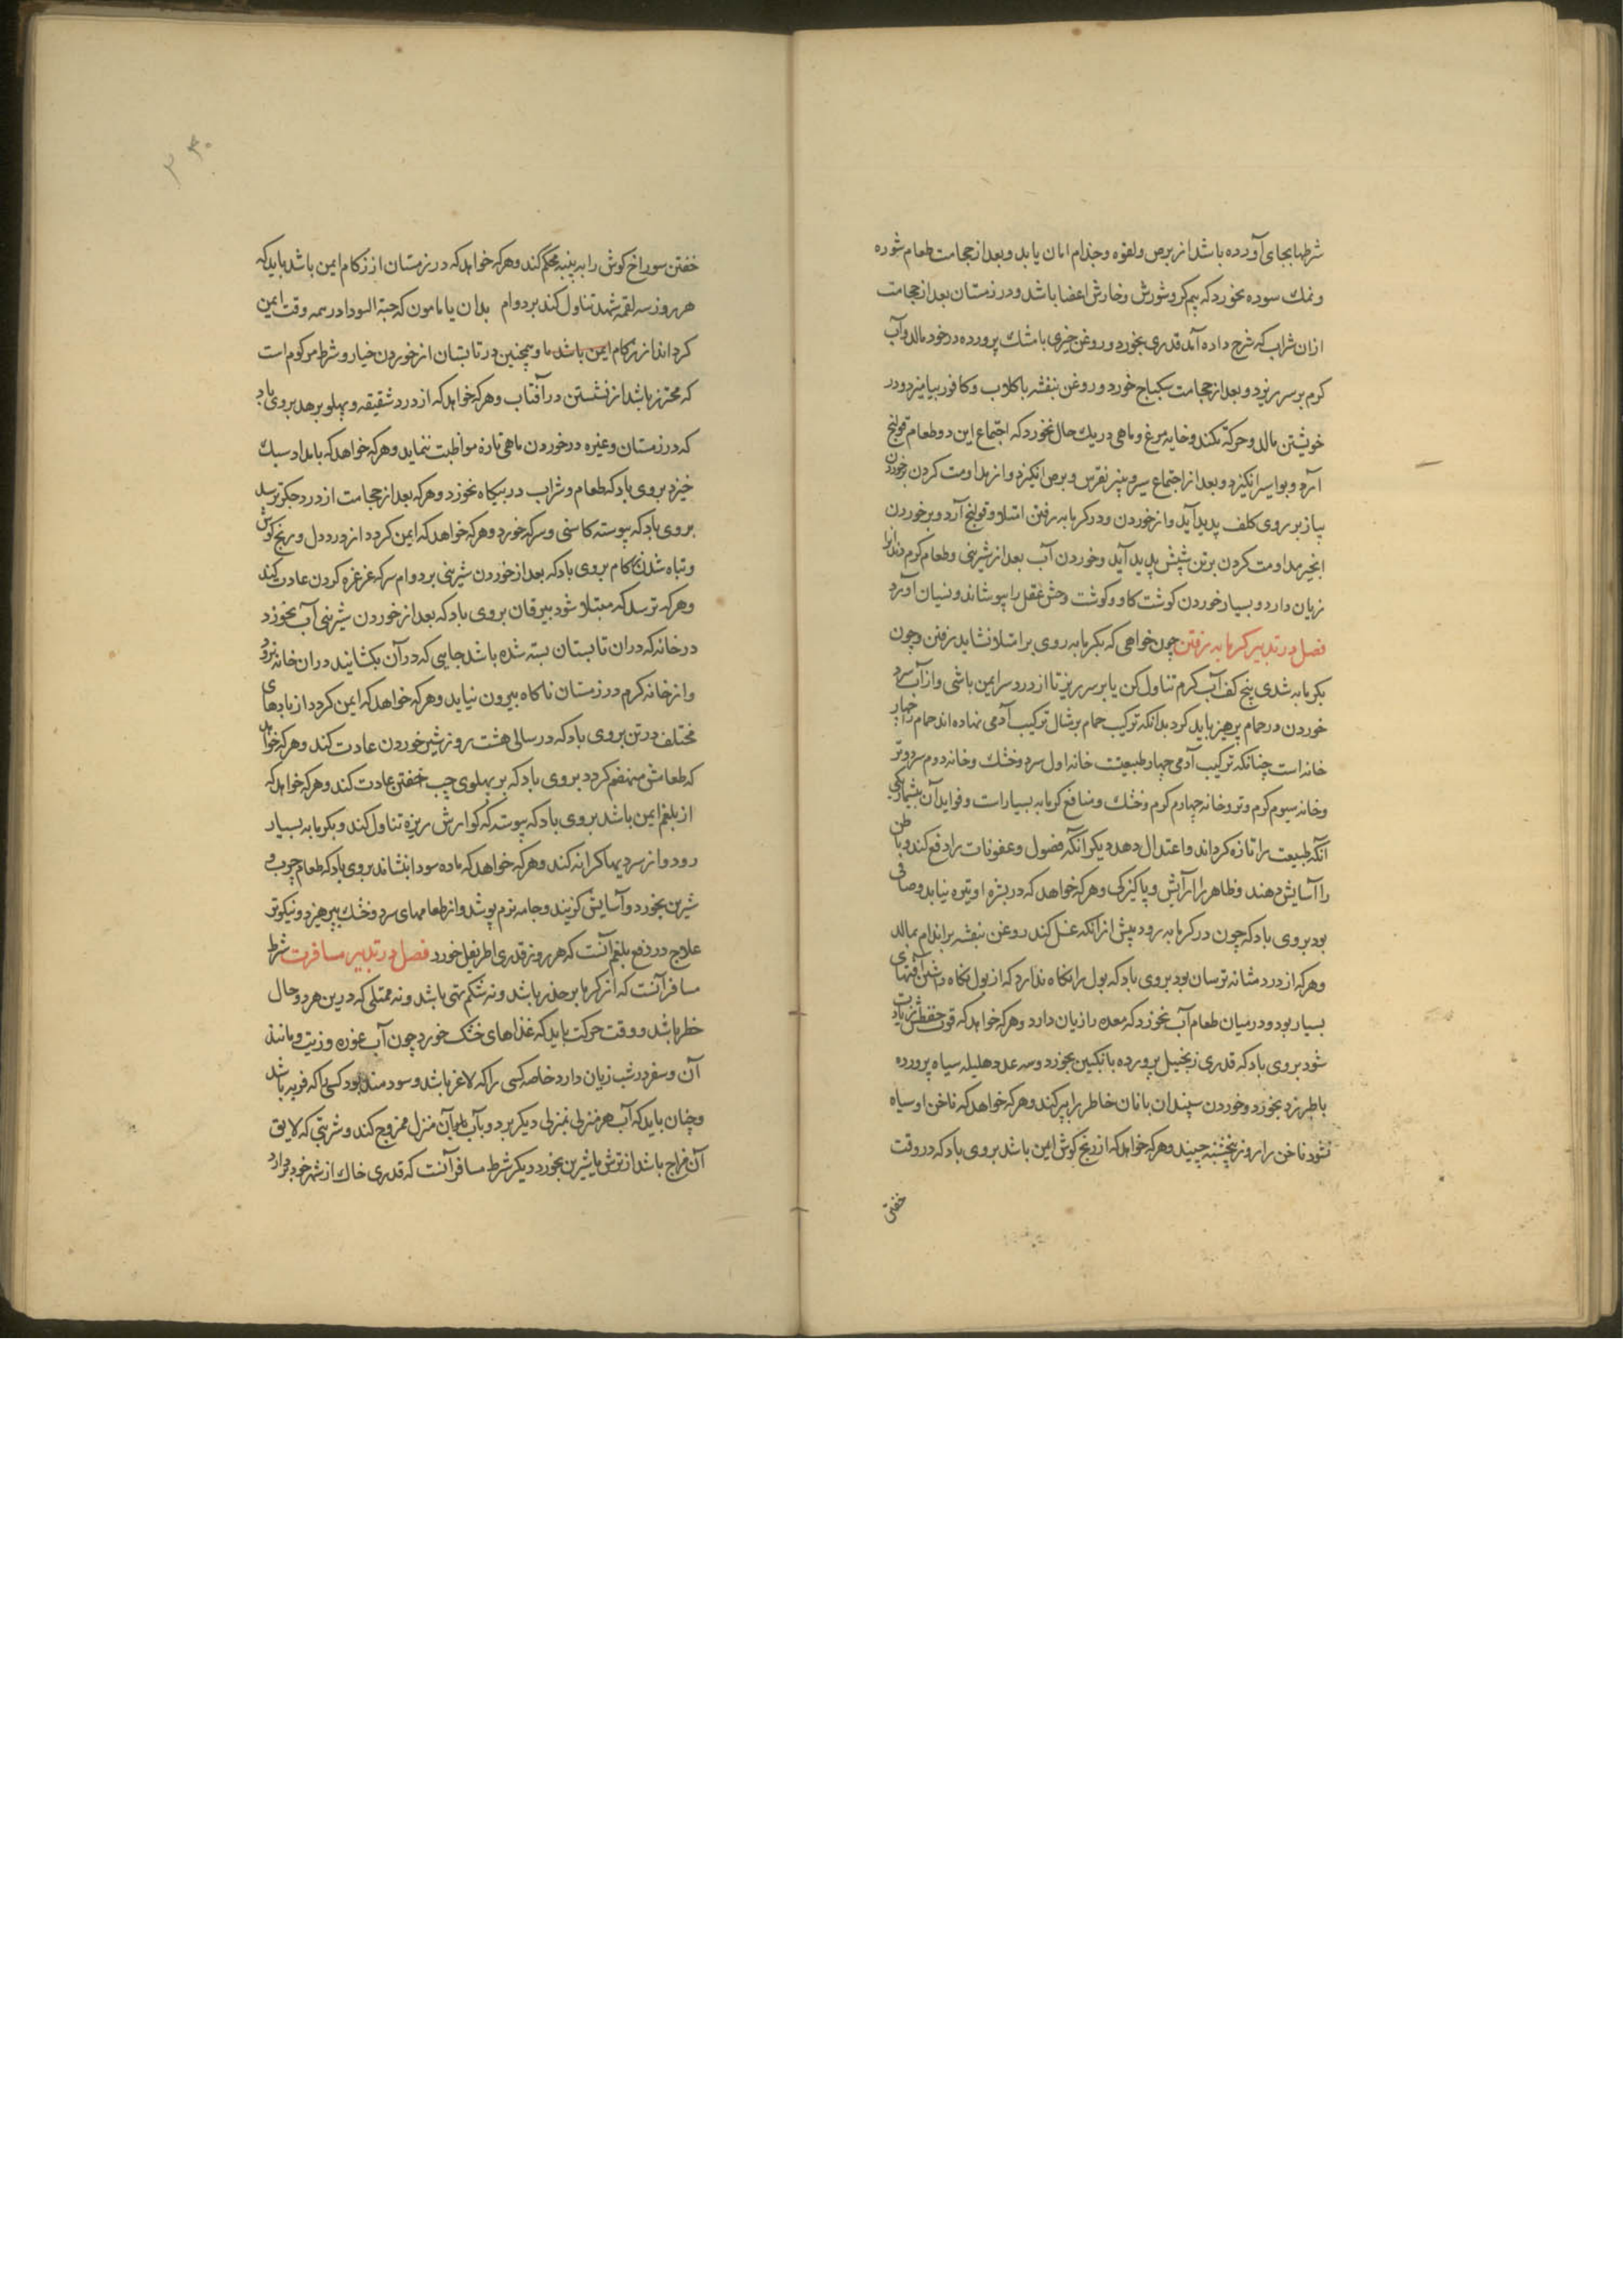 شرطها بجای آورده باشد از برص و لقوه و جذام امان یابد و بعد از حجامت طعام شوره
و نمك سوده نخورد که بیم کر و شورش و خارش اعضا باشد و در زمستان بعد از حجامت
ازان شراب که شرح داده آمد قدری بخورد و روغن خیری با مشك پرورده در خود مالد و آب
کرم بر سر ریزد و بعد از حجامت سکباج خورد و روغن بنفشه با کلاب و کافور بیامیزد و در
خویشتن مالد و حرکة نکند و خایه مرغ و ماهی در یك حال نخورد که اجتماع این دو طعام قولنج
آرد و بواسیر انکیزد و بعد از اجتماع سیر و پنیر نقرس و برص انکیزد و از مداومت کردن خوردن
پیاز بر روی کلف پدید آید و از خوردن و در کرمابه رفتن امتلا و قولنج آرد و بر خوردن
انجیر مداومت کردن بر تن شپش پدید آید و خوردن آب بعد از شیرینی و طعام کرم دندانرا
زیان دارد و بسیار خوردن کوشت کاو و کوشت وحش عقل را بپوشاند و نسیان آورد
فصل در تدبیر کرمابه رفتن چون خواهی که بکرمابه روی بر امتلا نشاید رفتن و چون
بکرمابه شدی پنج کف آب کرم تناول کن یا بر سر ریز تا از درد سر ایمن باشی و از آب سرد
خوردن در حمام پرهیز باید کرد بدانکه ترکیب حمام بر مثال ترکیب آدمی نهاده اند حمام را چهار
خانه است چنانکه ترکیب آدمی چهار طبیعتت خانه اول سرد و خشك و خانه دوم سرد و تر
و خانه سیوم کرم و تر و خانه چهارم کرم و خشك و منافع کرمابه بسیارات و فواید آن بیشمار یکی
آنکه طبیعت را تازه کرداند و اعتدال دهد دیکر آنکه فضول و عفونات را دفع کند و باطن
را آسایش دهند و ظاهر را آرایش و پاکیزکی و هر که خواهد که در بشره او تیره نیاید و صافی
بود بروی باد که چون در کرمابه رود پیش از آنکه غسل کند روغن بنفشه بر اندام بمالد
و هر که از درد مثانه ترسان بود بروی باد که بول را نکاه ندارد که از بول نکاه داشتن آفتهای
بسیار بود و در میان طعام آب نخورد که معده را زیان دارد و هر که خواهد که قوت حفظش زیادت
شود بروی باد که قدری زنجبیل پرورده بانکبین بخورد و سه عدد هلیله سیاه پرورده
باطبرزد بخورد و خوردن سپندان با نان خاطر را تیز کند و هر که خواهد که ناخن او سیاه
نشود ناخن را روز پنجشنبه چیند و هر که خواهد که از رنج کوش ایمن باشد بروی باد که در وقت
خفتن
۳۳۰
خفتن سوراخ کوش را به پنبه محکم کند و هر که خواهد که در زمستان از زکام ایمن باشد باید که
هر روز سه لقمه شهد تناول کند بر دوام بدان یا مامون که حبة السودا در همه وقت ایمن
کرداند از زکام ایمن باشد ما و همچنین در تابستان از خوردن خیار و شرط مرکوم است
که محترز باشد از نشستن در آفتاب و هر که خواهد که از درد شقیقه و پهلو برهد بروی باد
که در زمستان و غیره در خوردن ماهی تازه مواظبت ننماید و هر که خواهد که بامداد سبك
خیزد بروی باد که طعام و شراب در بیکاه نخورد و هر که بعد از حجامت از درد جکر ترسد
بروی باد که پیوسته کاسنی و سرکه خورد و هر که خواهد که ایمن کردد از درد دل و رنج کوش
و تباه شدن کام بروی باد که بعد از خوردن شیرینی بر دوام سرکه غرغره کردن عادت کند
و هر که ترسد که مبتلا شود بیرقان بروی باد که بعد از خوردن شیرینی آب نخورد
در خانه که دران تابستان بسته شده باشد جایی که در آن بکشایند دران خانه نرود
و از خانه کرم در زمستان ناکاه بیرون نیاید و هر که خواهد که ایمن کردد از بادهای
مختلف در تن بروی باد که در سالی هشت روز شیر خوردن عادت کند و هر که خواهد
که طعامش منهضم کردد بروی باد که بر پهلوی چپ خفتن عادت کند و هر که خواهد که
از بلغم ایمن باشد بروی باد که پیوسته که کوارش ریزه تناول کند و بکرمابه بسیار
رود و از سردیها کرانه کند و هر که خواهد که ماده سودا بنشاند بروی باد که طعام چرب و
شیرین بخورد و آسایش کزیند و جامه نرم پوشد و از طعامهای سرد و خشك بپرهیزد و نیکوتر
علاج در دفع بلغم آنست که هر روز قدری اطریفل خورد فصل در تدبیر مسافرت شرط
مسافر آنست که از کرما بر حذر باشد و نه شکم تهی باشد و نه ممتلی که درین هر دو حال
خطر باشد و وقت حرکت باید که غذاهای خنک خورد چون آب غوره و زیت و مانند
آن و سفر در شب زیان دارد خاصه کسی را که لاغر باشد و سودمند بود کسی را که فربه باشد
و چنان باید که آب هر منزلی بمنزلی دیکر برد و بآب آن منزل ممزوج کند و شربتی که لایق
آن مزاج باشد از ترش یا شیرین بخورد دیکر شرط مسافر آنست که قدری خاك از شهر خود بردارد